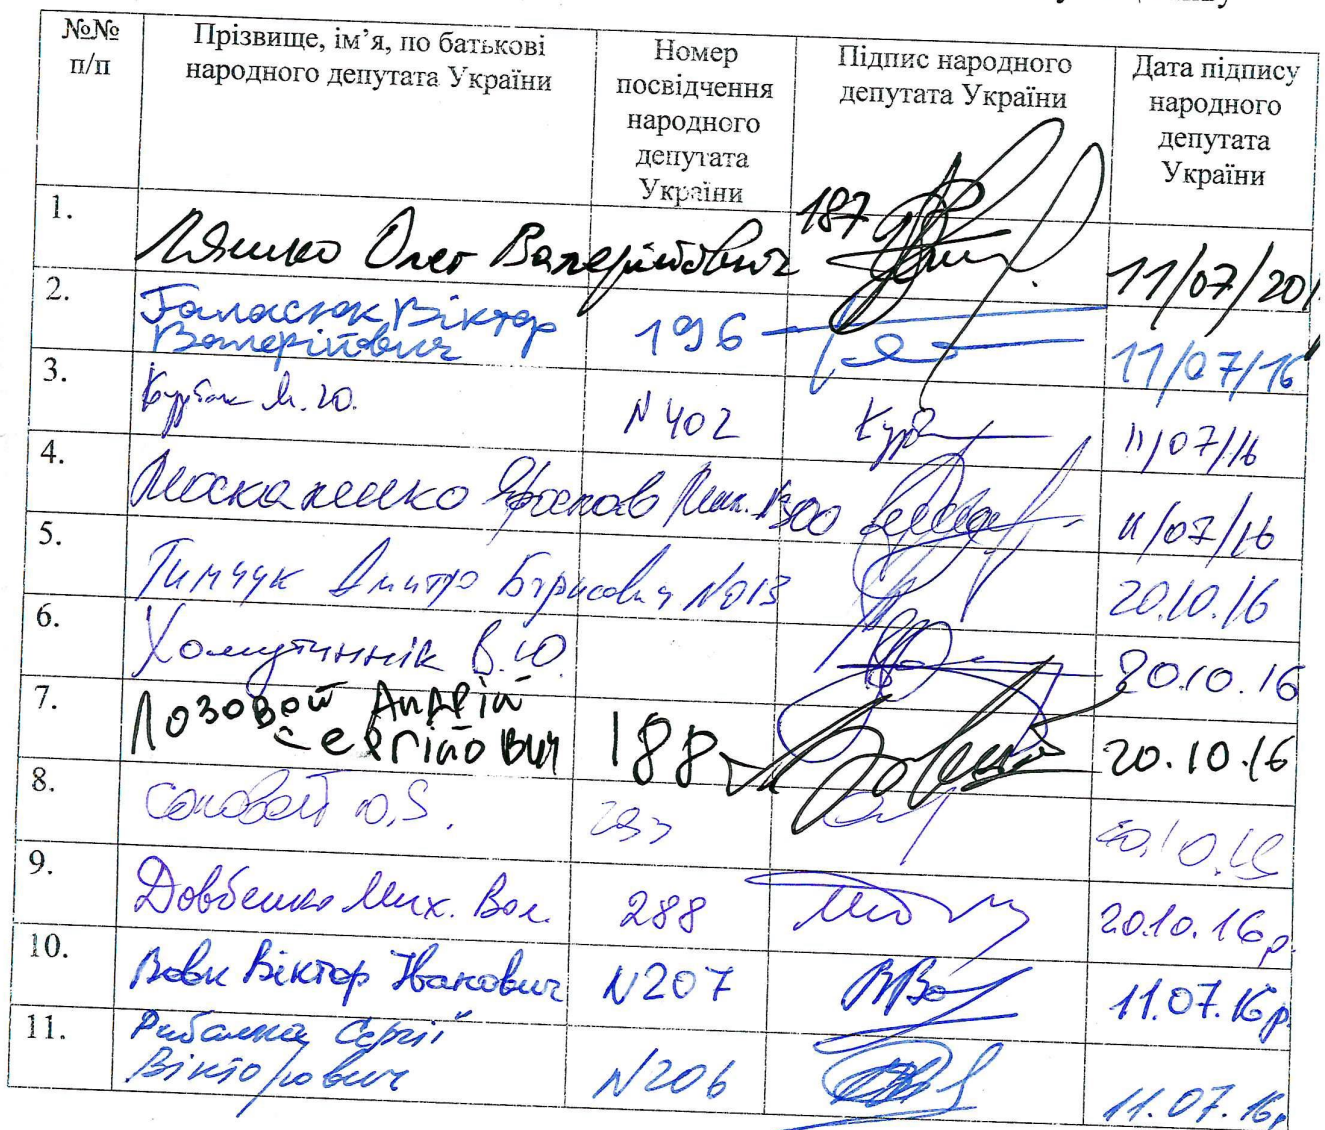 №№ п/п
Прізвище, ім’я, по батькові народного депутата України
Номер посвідчення народного депутата України
Підпис народного депутата України
Дата підпису народного депутата України
1. Ляшко Олег Валерійович 187 11/07/201
2. Галасюк Віктор
Валерійович 196 11/07/16
3. М. Ю. N 402 11/07/16
4. Москаленко Ярослав Мик. №300 11/07/16
5. Тимчук Дмитро Борисович №013 20.10.16
6. Хомутиннік В.Ю. 20.10.16
7. Лозовой Андрій
Сергійович 188 20.10.16
8.
9. Довбенко Мих. Вол. 288 20.10.16р.
10. Вовк Віктор Іванович N207 11.07.16р.
11. Рибалка Сергій
Вікторович N206 11.07.16р